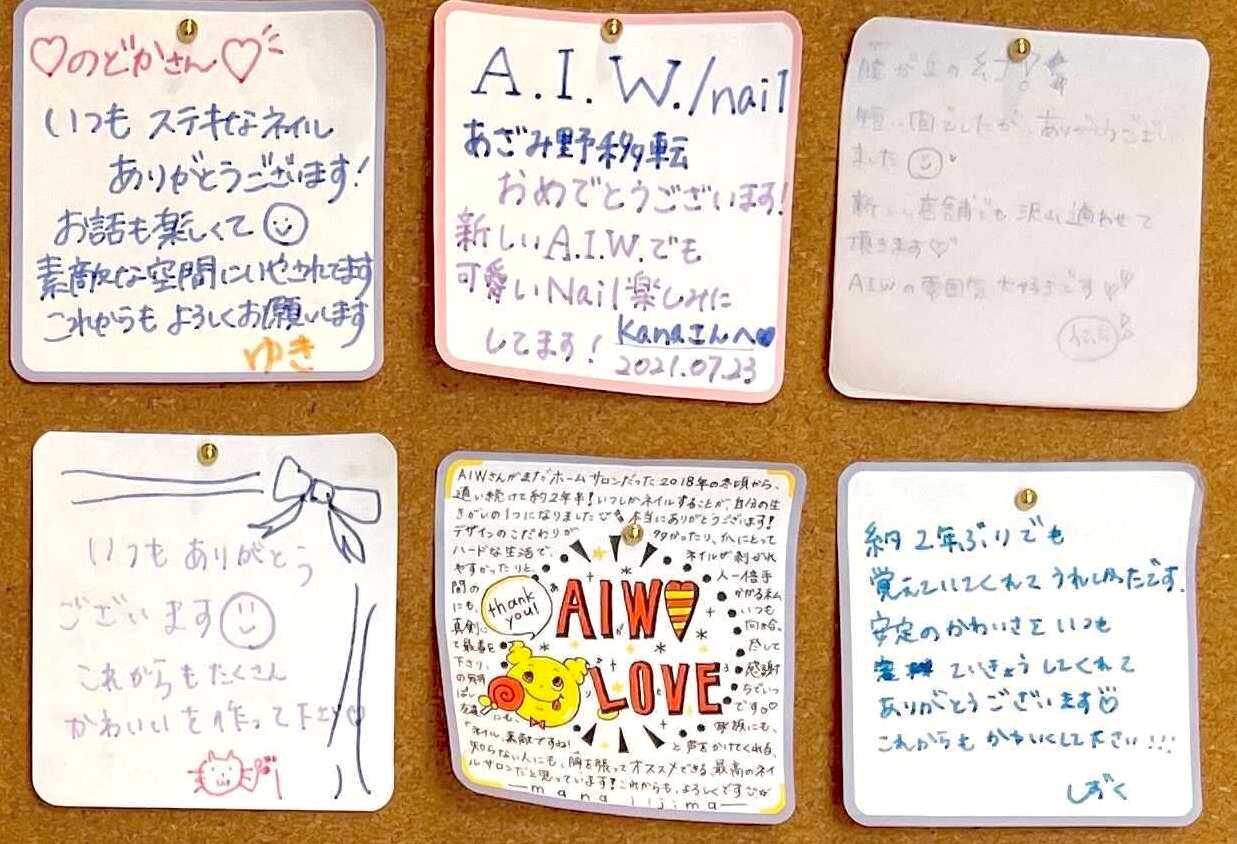 ♡のどかさん♡
いつも ステキなネイル
ありがとうございます!
お話も楽しくて
素敵な空間にいやされてます
これからも よろしくお願いします
ゆき
A.I.W./nail
あざみ野移転
おめでとうございます!
新しいA.I.W.でも
可愛いNail楽しみに
してます!
Kanaさんへ♥
2021.07.23
ありがとうござい
ました
新しい店舗でも 沢山通わせて
頂きます♡
AIWの雰囲気大好きです♡♡
いつも ありがとう
ございます
これからもたくさん
かわいいを作って下さい♡
AIWさんがまだホームサロンだった2018年の冬頃から、
通い続けて約2年半!いつしかネイルすることが、自分の生
きがいの1つになりました 本当にありがとうございます!
デザインのこだわりが
ハードな生活で、ネイルが剥がれ
やすかったりと、人一倍手
thank you!
AIW
LOVE
ネイル素敵ですね と声をかけてくれる
知らない人にも、胸を張ってオススメできる、最高のネイ
ルサロンだと思っています!これからも、よろしくです
mana iijima
約2年ぶりでも
覚えていてくれてうれしかったです。
安定のかわいさを いつも
ていきょうしてくれて
ありがとうございます
これからも かわいくして下さい!!!
しずく